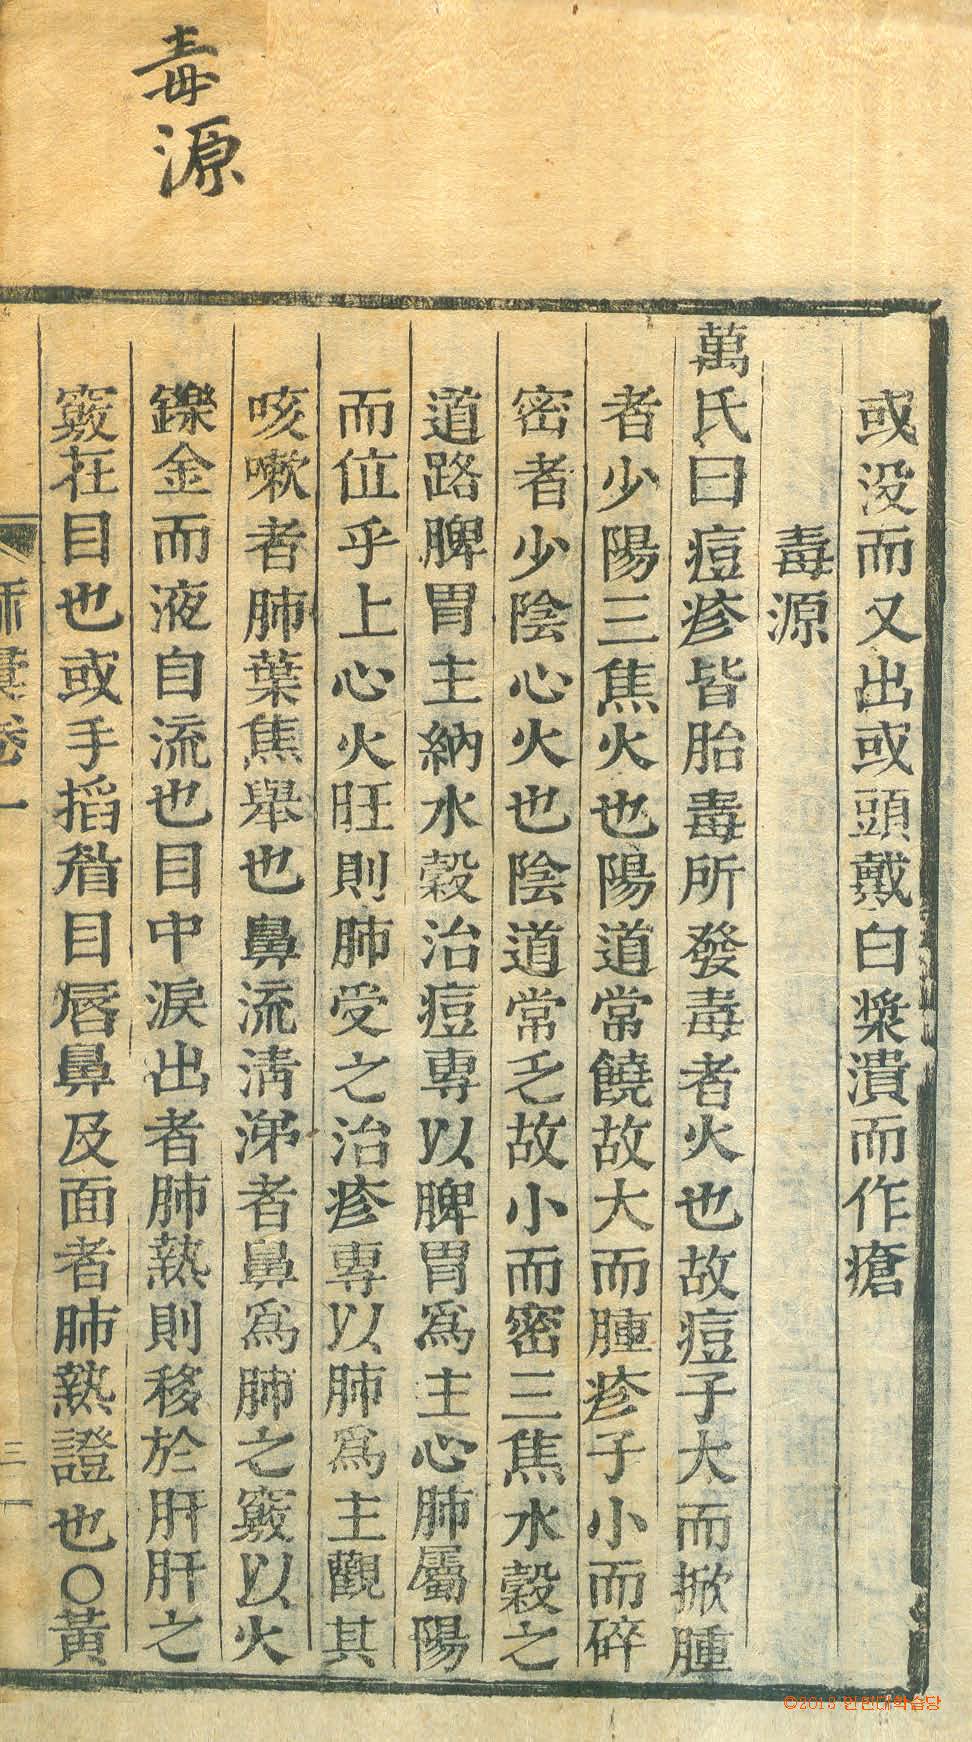 毒源
或没而又出或頭戴白漿潰而作瘡
毒源
萬氏曰痘疹皆胎毒所發毒者火也故痘子大而掀腫
者少陽三焦火也陽道常饒故大而腫疹子小而碎
密者少陰心火也陰道常乏故小而密三焦水穀之
道路脾胃主納水穀治痘專以脾胃爲主心肺屬陽
而位乎上心火旺則肺受之治疹專以肺爲主觀其
咳嗽者肺葉焦舉也鼻流淸涕者鼻爲肺之竅以火
鑠金而液自流也目中淚出者肺熱則移於肝肝之
竅在目也或手掐眉目唇鼻及面者肺熱證也○黃
卷一
三
©2013 한민대학습당